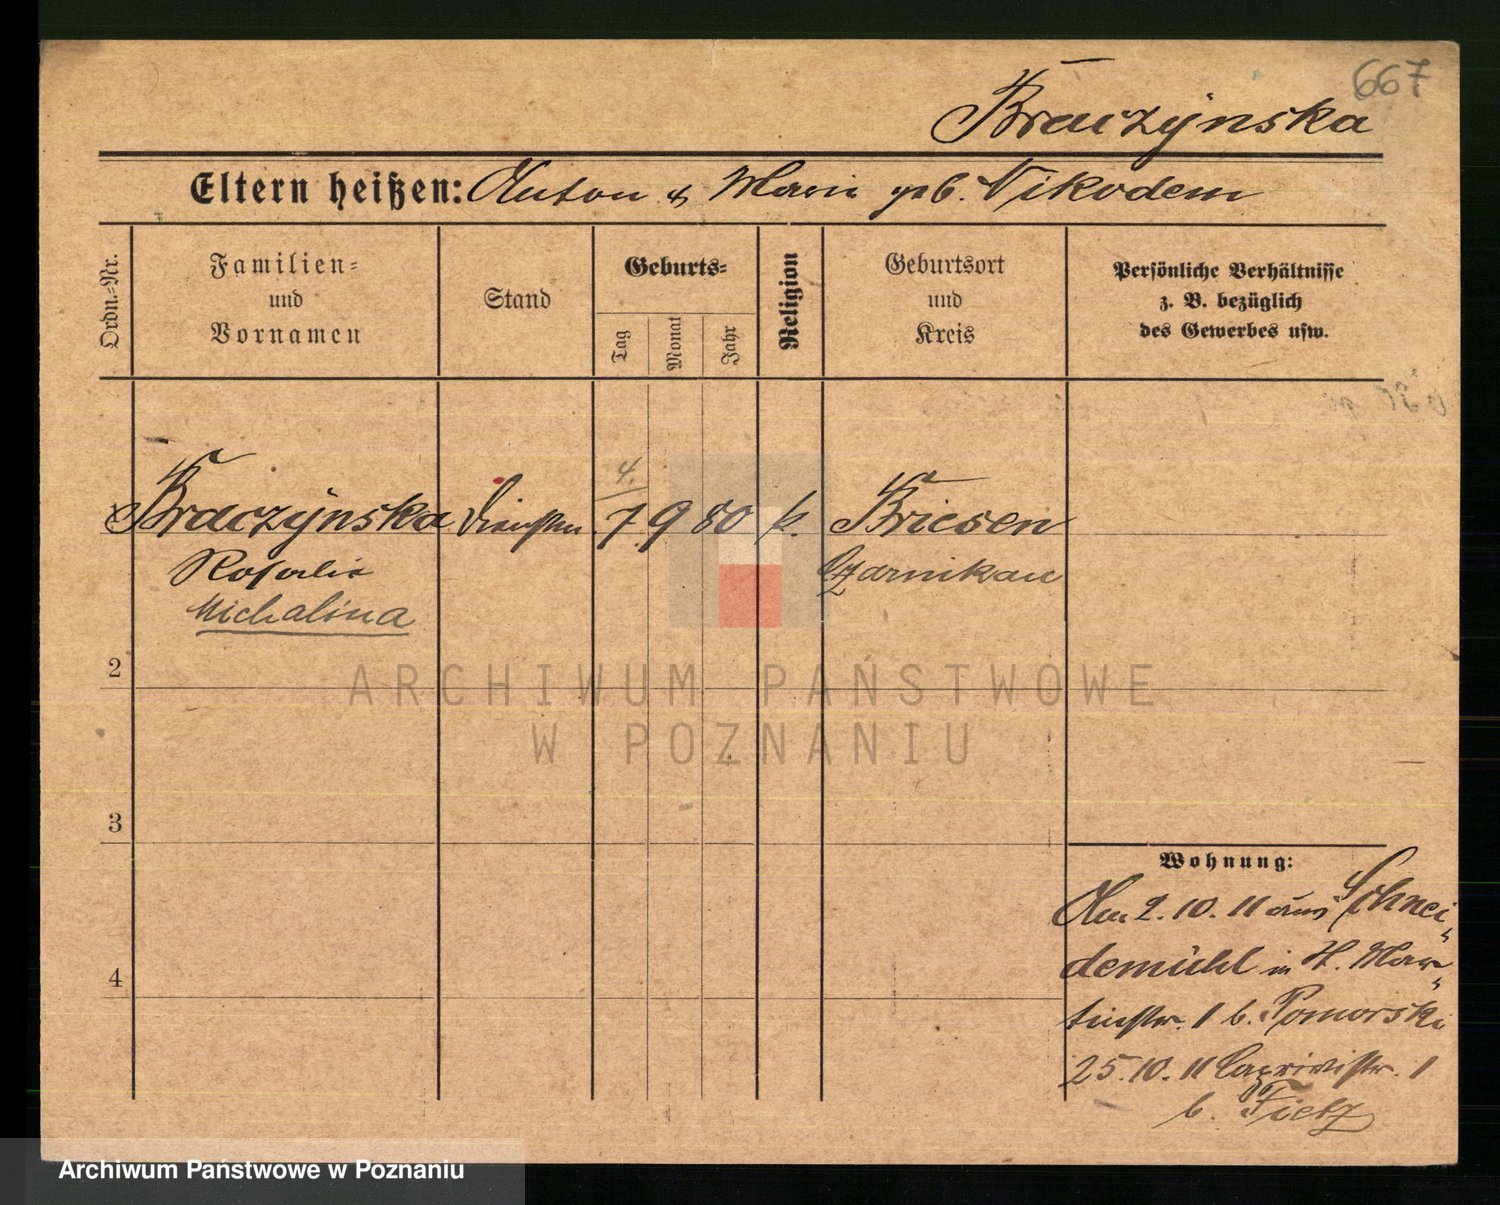 667
Braczyńska
Eltern heißen: Anton & Marie geb. Nikodem
Ordn.-Nr.
Familien-
und
Vornamen
Stand
Geburts-
Tag
Monat
Jahr
Religion
Geburtsort
und
Kreis
Persönliche Verhältnisse
z. B. bezüglich
des Gewerbes usw.
4.
Braczyńska 7 9 80 k. Briesen
Rosalie Czarnikau
Michalina
2
3
4
Wohnung:
Am 2.10.11 aus Schnei-
demühl in St. Mar-
tinstr. 1 b. Pomorski
25.10.11 Caprivistr. 1
b. Fietz
ARCHIWUM PAŃSTWOWE
W POZNANIU
Archiwum Państwowe w Poznaniu